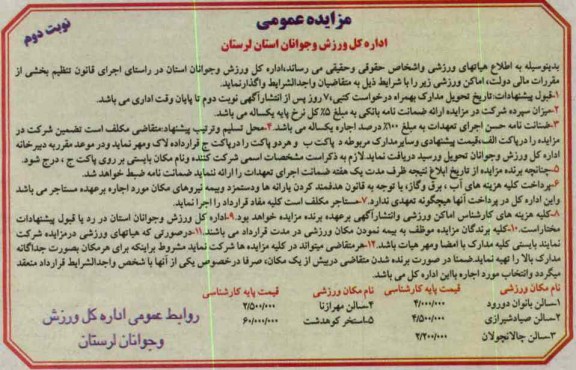 نوبت دوم
مزایده عمومی
اداره کل ورزش وجوانان استان لرستان
بدینوسیله به اطلاع هیاتهای ورزشی واشخاص حقوقی وحقیقی می رساند،اداره کل ورزش وجوانان استان در راستای اجرای قانون تنظیم بخشی از
مقررات مالی دولت، اماکن ورزشی زیر را با شرایط ذیل به متقاضیان واجدالشرایط واگذارنماید.
۱.قبول پیشنهادات:تاریخ تحویل مدارک بهمراه درخواست کتبی،۷ روز پس از انتشارآگهی نوبت دوم تا پایان وقت اداری می باشد.
۲-میزان سپرده شرکت در مزایده ارائه ضمانت نامه بانکی به مبلغ ۵٪ کل نرخ پایه یکساله می باشد.
۳.ضمانت نامه حسن اجرای تعهدات به مبلغ ۱۰۰٪ درصد اجاره یکساله می باشد.۴-محل تسلیم وترتیب پیشنهاد:متقاضی مکلف است تضمین شرکت در
مزایده را درپاکت الف،قیمت پیشنهادی وسایرمدارک مربوطه د رپاکت ب وهردو پاکت را درپاکت ج قرارداده لاک ومهر نماید ودر موعد مقرر به دبیرخانه
اداره کل ورزش وجوانان تحویل ورسید دریافت نماید.لازم به ذکراست مشخصات اسمی شرکت کننده ونام مکان بایستی بر روی پاکت ج ، درج شود.
۵-چنانچه برنده مزایده از تاریخ ابلاغ نتیجه ظرف مدت یک هفته ضمانت اجرای تعهدات را ارائه ننماید ضمانت نامه ضبط خواهد شد.
۶-پرداخت کلیه هزینه های آب ، برق وگاز، با توجه به قانون هدفمند کردن یارانه ها ودستمزد وبیمه نیروهای مکان مورد اجاره برعهده مستاجر می باشد
واین اداره کل در پرداخت آنها هیچگونه تعهدی ندارد.۷-مستاجر مکلف است کلیه مفاد قرارداد را اجرا نماید.
۸-کلیه هزینه های کارشناس اماکن ورزشی وانتشارآگهی برعهده برنده مزایده خواهد بود.۹-اداره کل ورزش وجوانان استان در رد یا قبول پیشنهادات
مختاراست.۱۰-کلیه برندگان مزایده موظف به بیمه نمودن مکان ورزشی در مدت قرارداد می باشند.۱۱-درصورتی که هیاتهای ورزشی درمزایده شرکت
نمایند بایستی کلیه مدارک با امضا ومهر هیات باشد.۱۲-هرمتقاضی میتواند در کلیه مزایده ها شرکت نماید مشروط براینکه برای هرمکان بصورت جداگانه
مدارک بالا را تهیه نماید.ضمنا در صورت برنده شدن متقاضی دربیش از یک مکان، صرفا درخصوص یکی از آنها با شخص واجدالشرایط قرارداد منعقد
میگردد وانتخاب مورد اجاره بااین اداره کل می باشد.
نام مکان ورزشی قیمت پایه کارشناسی نام مکان ورزشی قیمت پایه کارشناسی
۱-سالن بانوان دورود ۴/۰۰۰/۰۰۰ ۴-سالن مهرازنا ۲/۵۰۰/۰۰۰
۲-سالن صیادشیرازی ۴/۵۰۰/۰۰۰ ۵-استخر کوهدشت ۶۰/۰۰۰/۰۰۰
۳-سالن چالانچولان ۲/۲۰۰/۰۰۰
روابط عمومی اداره کل ورزش
وجوانان لرستان